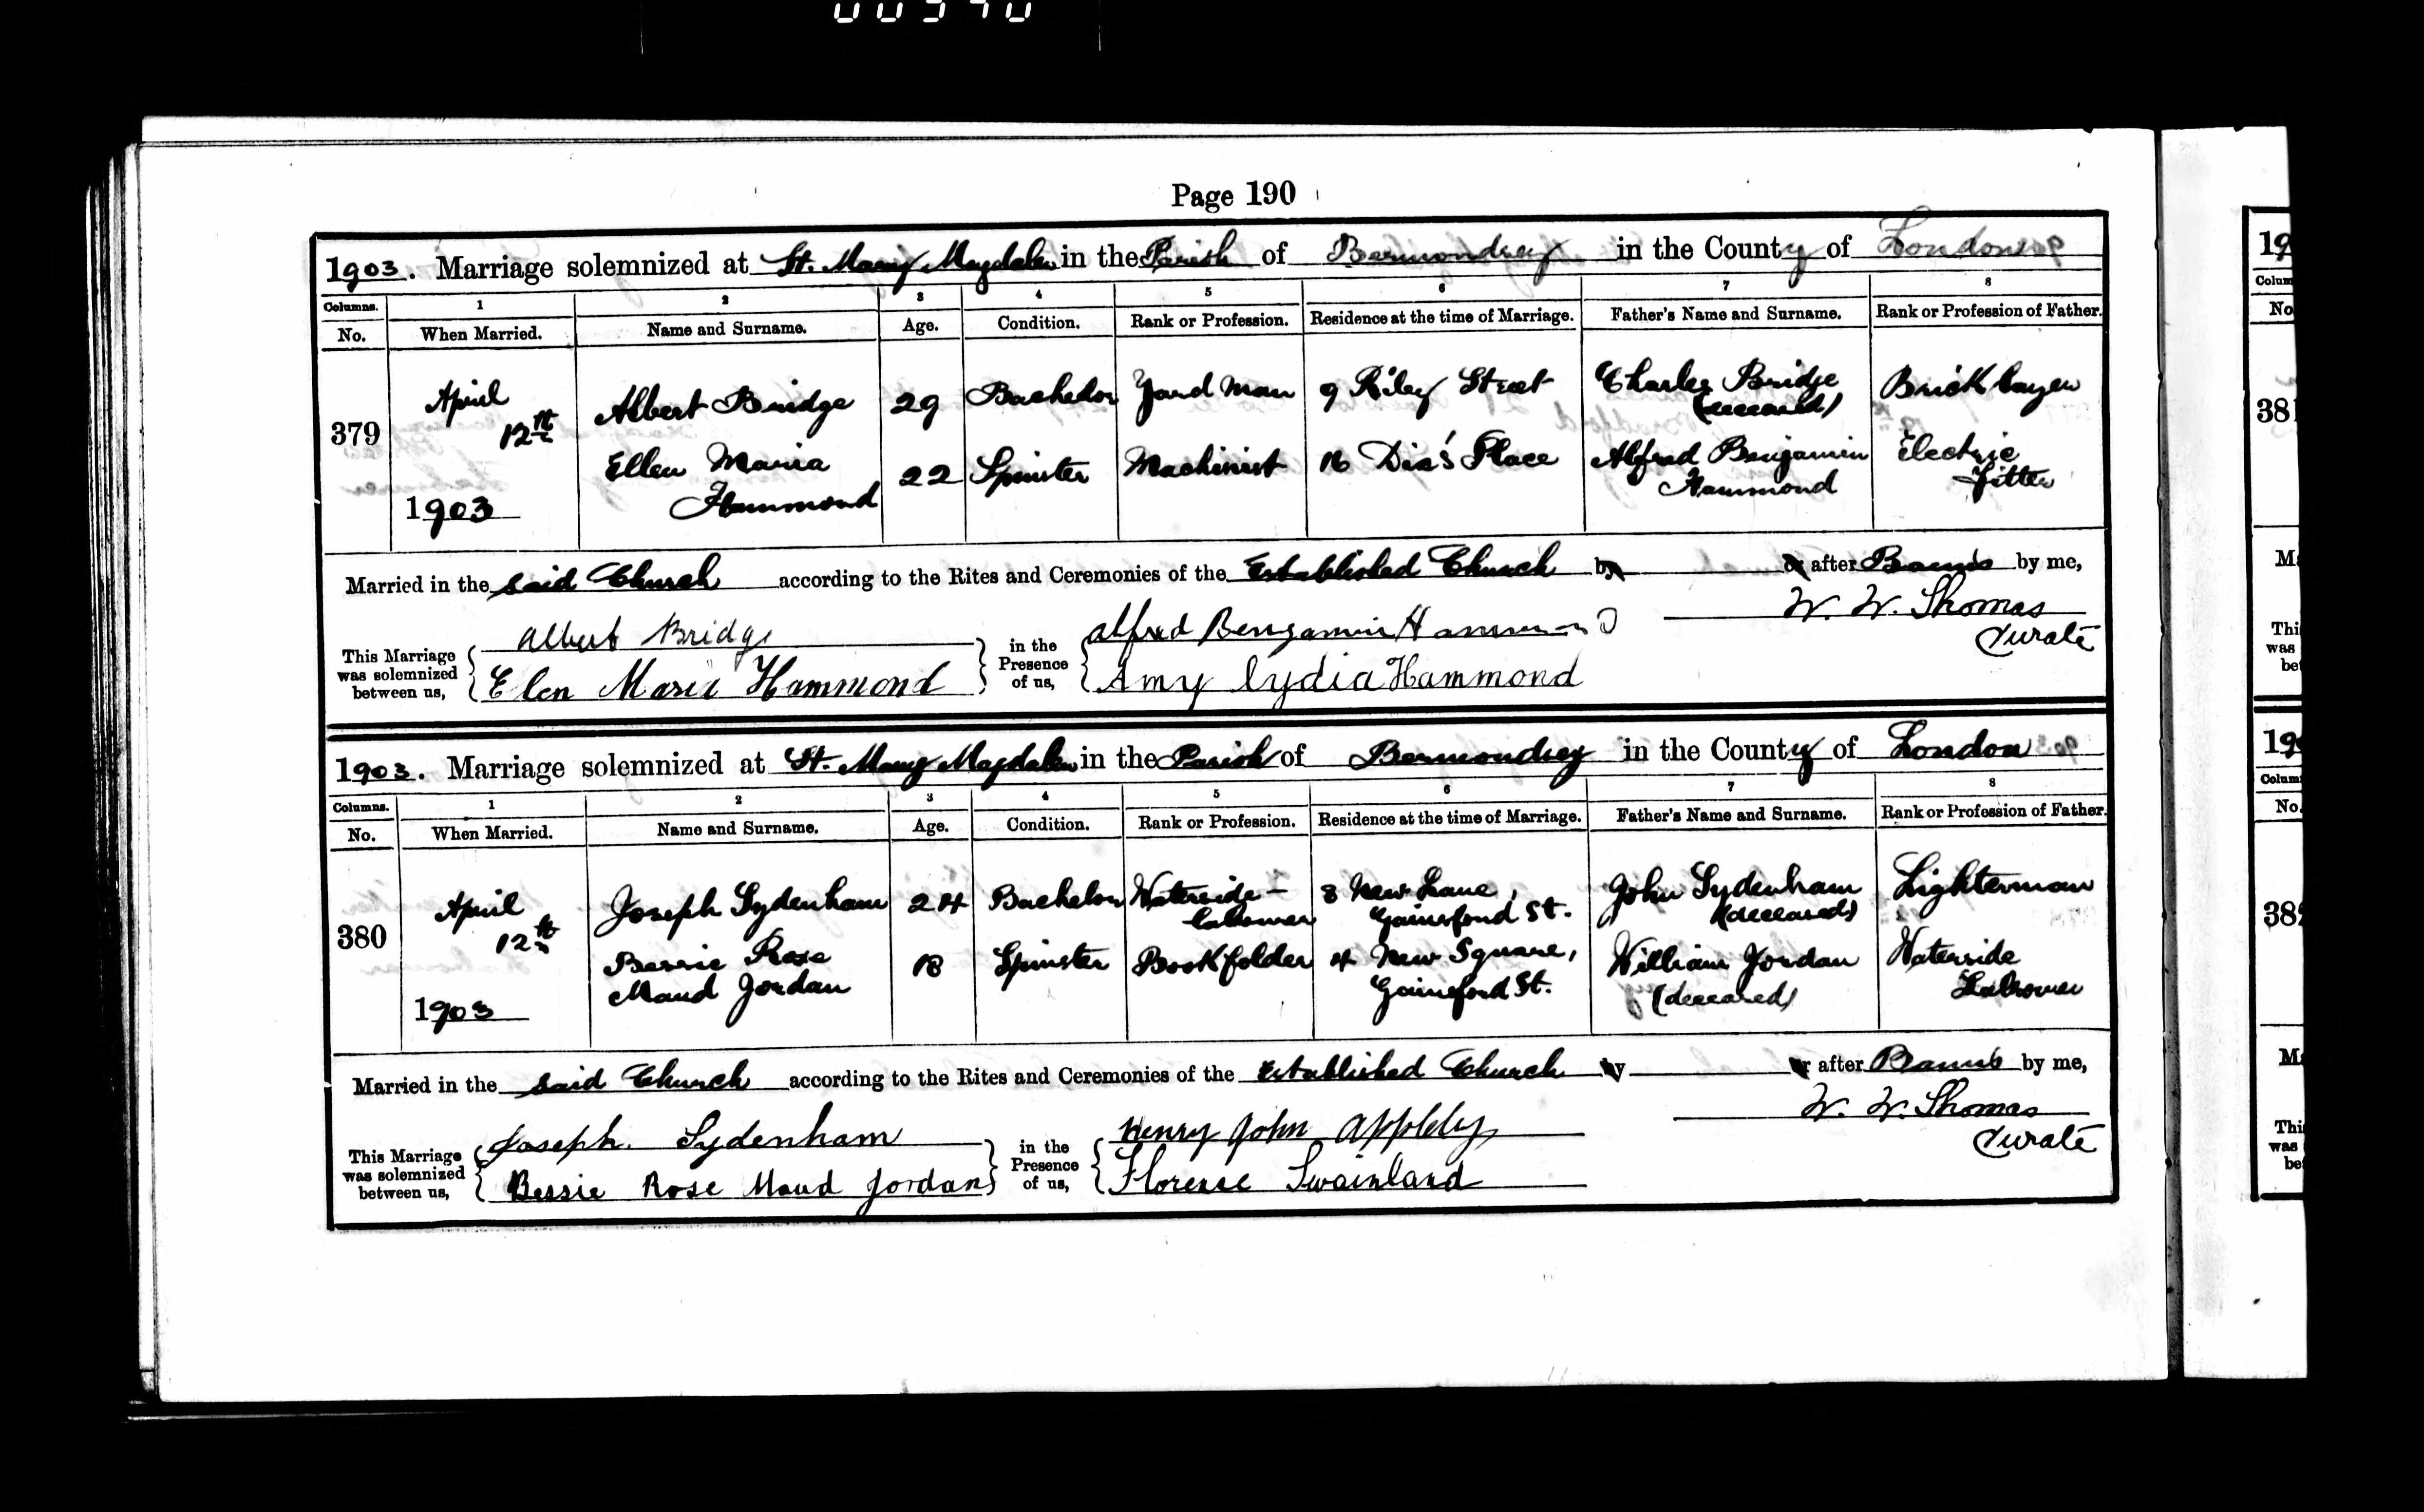 00390
Page 190
1903. Marriage solemnized at St. Mary Magdalen in the Parish of Bermondsey in the County of London
Columns. 1 2 3 4 5 6 7 8
No. When Married. Name and Surname. Age. Condition. Rank or Profession. Residence at the time of Marriage. Father's Name and Surname. Rank or Profession of Father.
379 April 12th 1903
Albert Bridge 29 Bachelor Yard Man 9 Riley Street Charles Bridge (deceased) Bricklayer
Ellen Maria Hammond 22 Spinster Machinist 16 Dix's Place Alfred Benjamin Hammond Electric Fitter
Married in the said Church according to the Rites and Ceremonies of the Established Church by or after Banns by me,
W. W. Thomas
Curate
This Marriage was solemnized between us,
Albert Bridge
Elen Maria Hammond
in the Presence of us,
Alfred Bengamin Hammond
Amy Lydia Hammond
1903. Marriage solemnized at St. Mary Magdalen in the Parish of Bermondsey in the County of London
Columns. 1 2 3 4 5 6 7 8
No. When Married. Name and Surname. Age. Condition. Rank or Profession. Residence at the time of Marriage. Father's Name and Surname. Rank or Profession of Father.
380 April 12th 1903
Joseph Sydenham 24 Bachelor Waterside-labourer 3 New Lane, Gainsford St. John Sydenham (deceased) Lighterman
Bessie Rose Maud Jordan 18 Spinster Bookfolder 4 New Square, Gainsford St. William Jordan (deceased) Waterside Labourer
Married in the said Church according to the Rites and Ceremonies of the Established Church by or after Banns by me,
W. W. Thomas
Curate
This Marriage was solemnized between us,
Joseph Sydenham
Bessie Rose Maud Jordan
in the Presence of us,
Henry John Appleby
Florence Swainland
19
Colum
No
381
M
Thi
was
be
19
Colum
No.
382
M
Thi
was
be